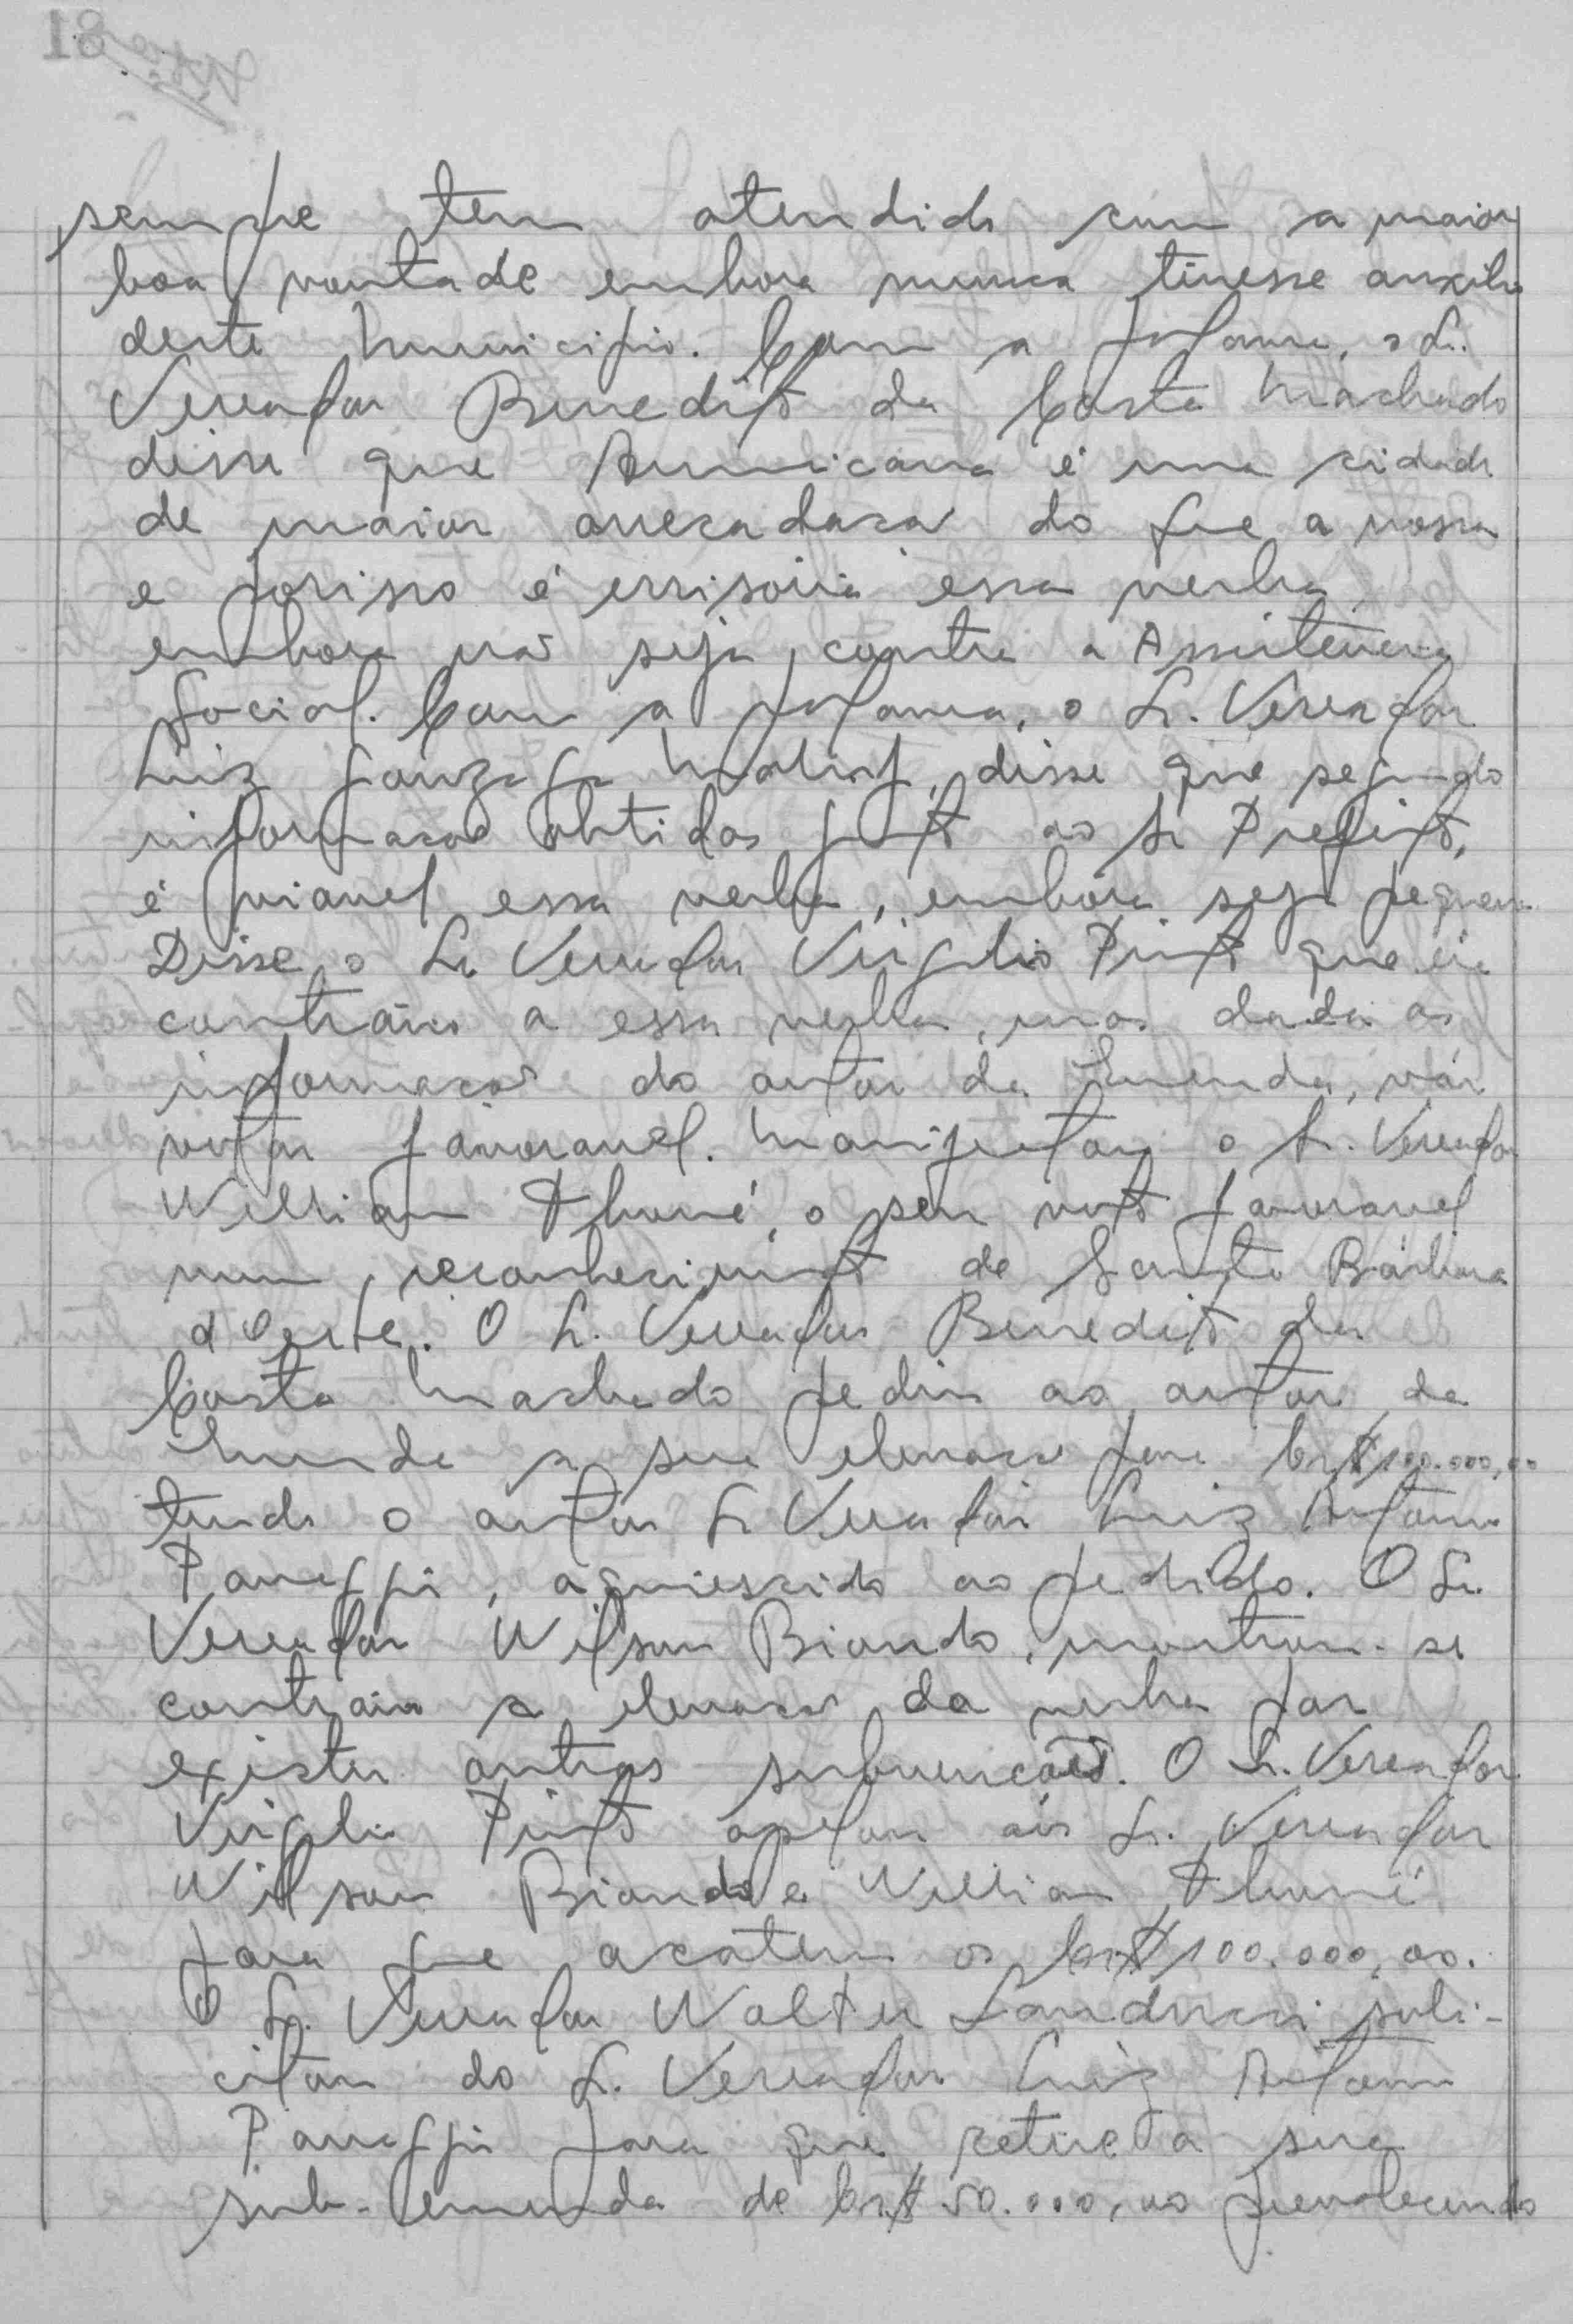 18
sempre tem atendido com a maior
boa vontade embora nunca tivesse auxilio
deste Municipio. Com a palavra, o Sr.
Vereador Benedito da Costa Machado
disse que Americana é uma cidade
de maior arrecadacao do que a nossa
e porisso é irrisoria essa verba,
embora não seja contra a Assistencia
Social. Com a palavra, o Sr. Vereador
Luiz Gonzaga disse que segundo
informacoes obtidas junto ao Sr Prefeito,
é viavel essa verba, embora seja pequena
Disse o Sr. Vereador Virgilio Pinto que era
contrário a essa verba, mas dada as
informacoes do autor da Emenda, vai
votar favoravel. Manifestou o Sr. Vereador
Willian Thomé, o seu voto favoravel
num reconhecimento de Santa Bárbara
d'Oeste. O Sr. Vereador Benedito da
Costa Machado pediu ao autor da
Emenda a sua elevacao para Cr$ 100.000,00
tendo o autor Sr Vereador Luiz Antonio
Panaggio, aquiescido ao pedido. O Sr.
Vereador Wilson Biondo, mostrou-se
contrario a elevacao da verba por
existir outras subvencões. O Sr. Vereador
Virgilio Pinto apelou aos Sr. Vereador
Wilson Biondo e Willian Thomé
para que acatem os Cr$ 100.000,00.
O Sr. Vereador Walter Landucci soli-
citou do Sr. Vereador Luiz Antonio
Panaggio para que retire a sua
sub-emenda de Cr$ 50.000,00 prevalecendo